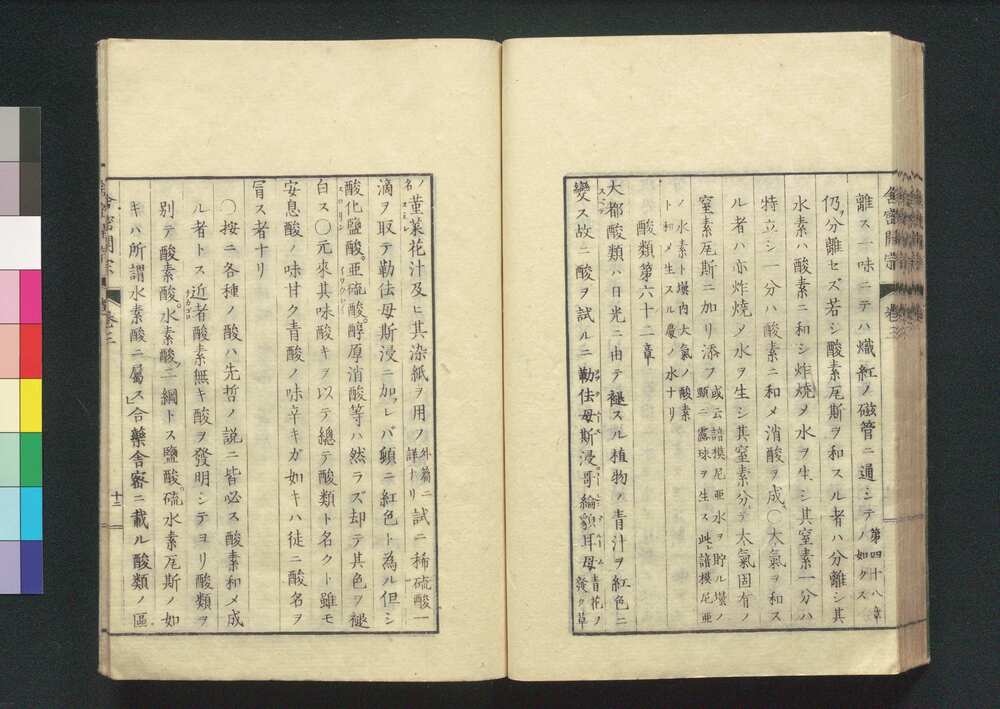 離ス一味ニテハ熾紅ノ磁管ニ通シテノ如クス 第四十八章
仍分離セズ若シ酸素瓦斯ヲ和スル者ハ分離シ其
水素ハ酸素ニ和シ炸燒ヲ水ヲ生シ其窒素一分ハ
特立シ一分ハ酸素ニ和メ消酸ヲ成〇大氣ヲ和ス
ル者ハ亦炸燒メ水ヲ生シ其窒素分テ大氣固有ノ
窒素瓦斯ニ加リ添フ 或云諳模尼亜水ヲ貯ル壜ノ
頭ニ露球ヲ生ス此諳模尼亜
ノ水素ト壜内大氣ノ酸素
ト和メ生スル處ノ水ナリ
酸類第六十二章
大都酸類ハ日光ニ由テ褪スル植物ノ青汁ヲ紅色ニ
變ス故ニ酸ヲ試ルニ勒佉母斯浸哥綸貌耳母 青花ノ
發ク草
ノ名 菫菜花汁及ヒ其染紙ヲ用フ 外篇ニ
詳ナリ 試ニ稀硫酸一
滴ヲ取テ勒佉母斯浸ニ加フレバ頓ニ紅色ト為ル但シ
酸化鹽酸亜硫酸醇厚消酸等ハ然ラズ却テ其色ヲ褪
白ス〇元來其味酸キヲ以テ總テ酸類ト名クト雖モ
安息酸ノ味甘ク青酸ノ味辛キガ如キハ徒ニ酸名ヲ
冒ス者ナリ
〇按ニ各種ノ酸ハ先哲ノ説ニ皆必ス酸素和メ成
ル者トス近者酸素無キ酸ヲ發明シテヨリ酸類ヲ
別テ酸素酸水素酸二綱トス鹽酸硫水素瓦斯ノ如
キハ所謂水素酸ニ屬ス合藥舎密ニ載ル酸類ノ區
舎密開宗 卷三
十三